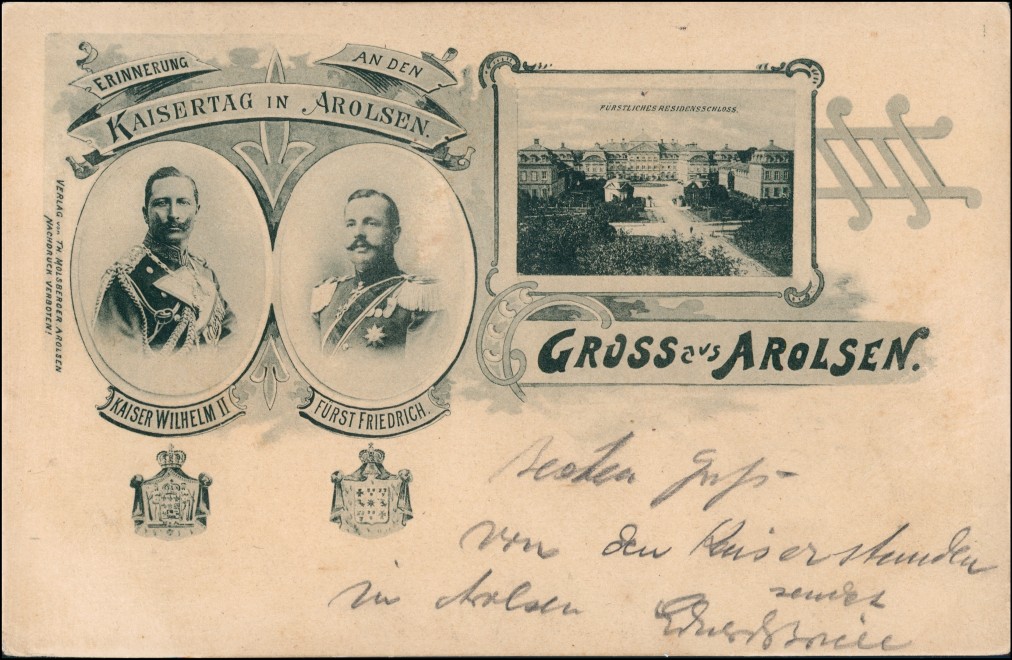 ERINNERUNG AN DEN
KAISERTAG IN AROLSEN.
VERLAG von TH. MOLSBERGER AROLSEN
NACHDRUCK VERBOTEN!
KAISER WILHELM II
FÜRST FRIEDRICH.
FÜRSTLICHES RESIDENSSCHLOSS.
GRUSS aus AROLSEN.
Besten Gruß
von den Kaiserstunden
in Arolsen sendet